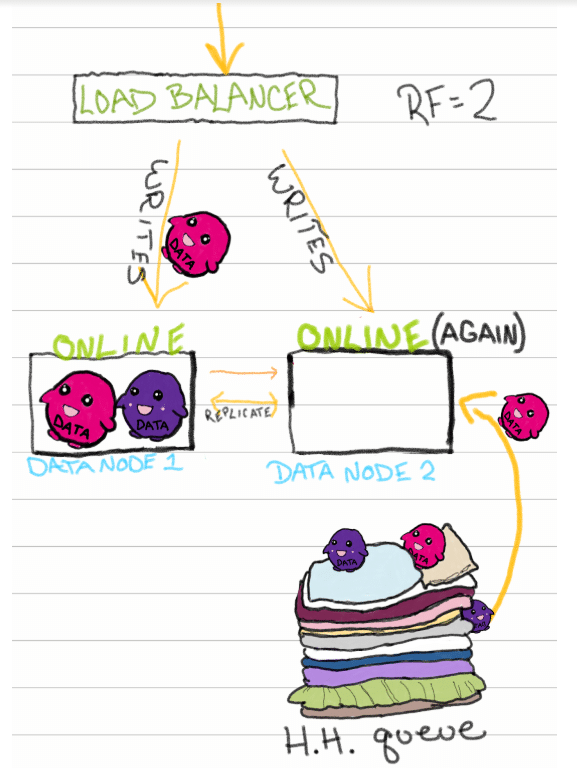 LOAD BALANCER
RF=2
WRITES
WRITES
DATA
ONLINE
ONLINE (AGAIN)
DATA
DATA
REPLICATE
DATA
DATA NODE 1
DATA NODE 2
DATA
DATA
H.H. queue